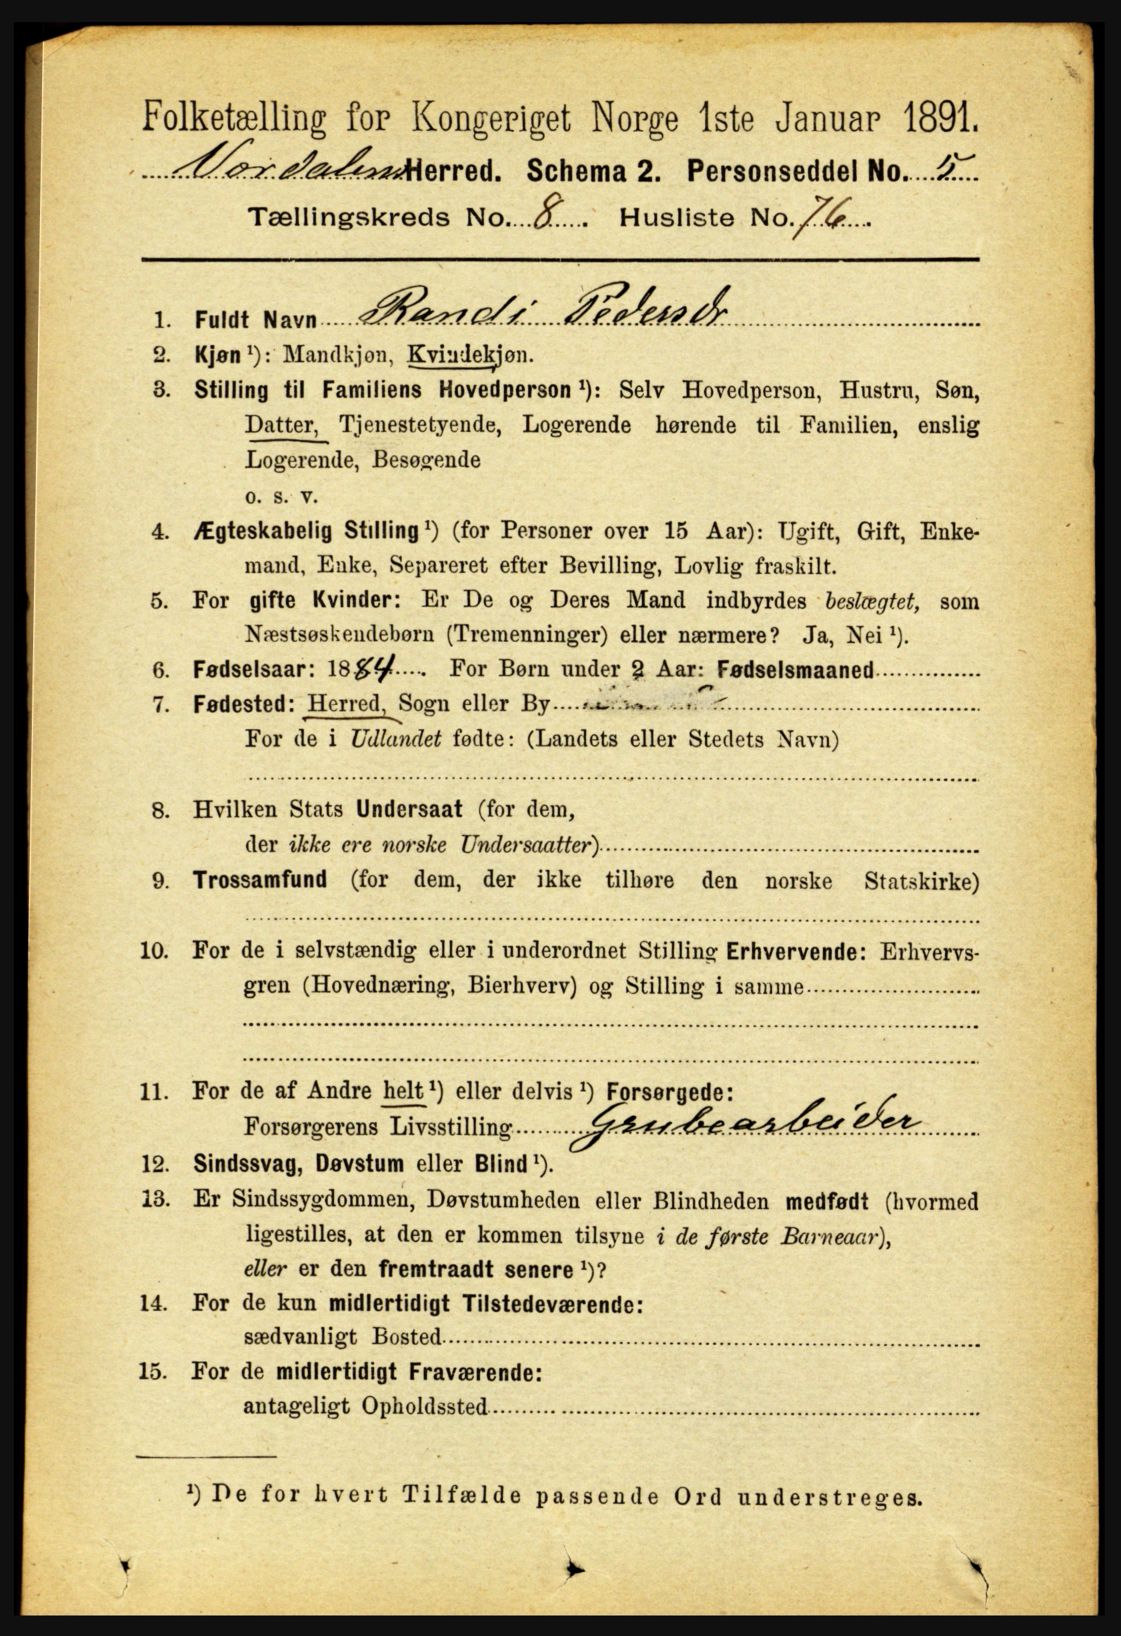 Folketælling for Kongeriget Norge 1ste Januar 1891.
Herred. Schema 2. Personseddel No. 5
Tællingskreds No. 8. Husliste No. 76.
1. Fuldt Navn Randi Pedersdr
2. Kjøn ¹): Mandkjøn, Kvindekjøn.
3. Stilling til Familiens Hovedperson ¹): Selv Hovedperson, Hustru, Søn,
Datter, Tjenestetyende, Logerende hørende til Familien, enslig
Logerende, Besøgende
o. s. v.
4. Ægteskabelig Stilling ¹) (for Personer over 15 Aar): Ugift, Gift, Enke-
mand, Enke, Separeret efter Bevilling, Lovlig fraskilt.
5. For gifte Kvinder: Er De og Deres Mand indbyrdes beslægtet, som
Næstsøskendebørn (Tremenninger) eller nærmere? Ja, Nei ¹).
6. Fødselsaar: 1884. For Børn under 2 Aar: Fødselsmaaned
7. Fødested: Herred, Sogn eller By
For de i Udlandet fødte: (Landets eller Stedets Navn)
8. Hvilken Stats Undersaat (for dem,
der ikke ere norske Undersaatter)
9. Trossamfund (for dem, der ikke tilhøre den norske Statskirke)
10. For de i selvstændig eller i underordnet Stilling Erhvervende: Erhvervs-
gren (Hovednæring, Bierhverv) og Stilling i samme
11. For de af Andre helt ¹) eller delvis ¹) Forsørgede:
Forsørgerens Livsstilling Grubearbeider
12. Sindssvag, Døvstum eller Blind ¹).
13. Er Sindssygdommen, Døvstumheden eller Blindheden medfødt (hvormed
ligestilles, at den er kommen tilsyne i de første Barneaar),
eller er den fremtraadt senere ¹)?
14. For de kun midlertidigt Tilstedeværende:
sædvanligt Bosted
15. For de midlertidigt Fraværende:
antageligt Opholdssted
¹) De for hvert Tilfælde passende Ord understreges.